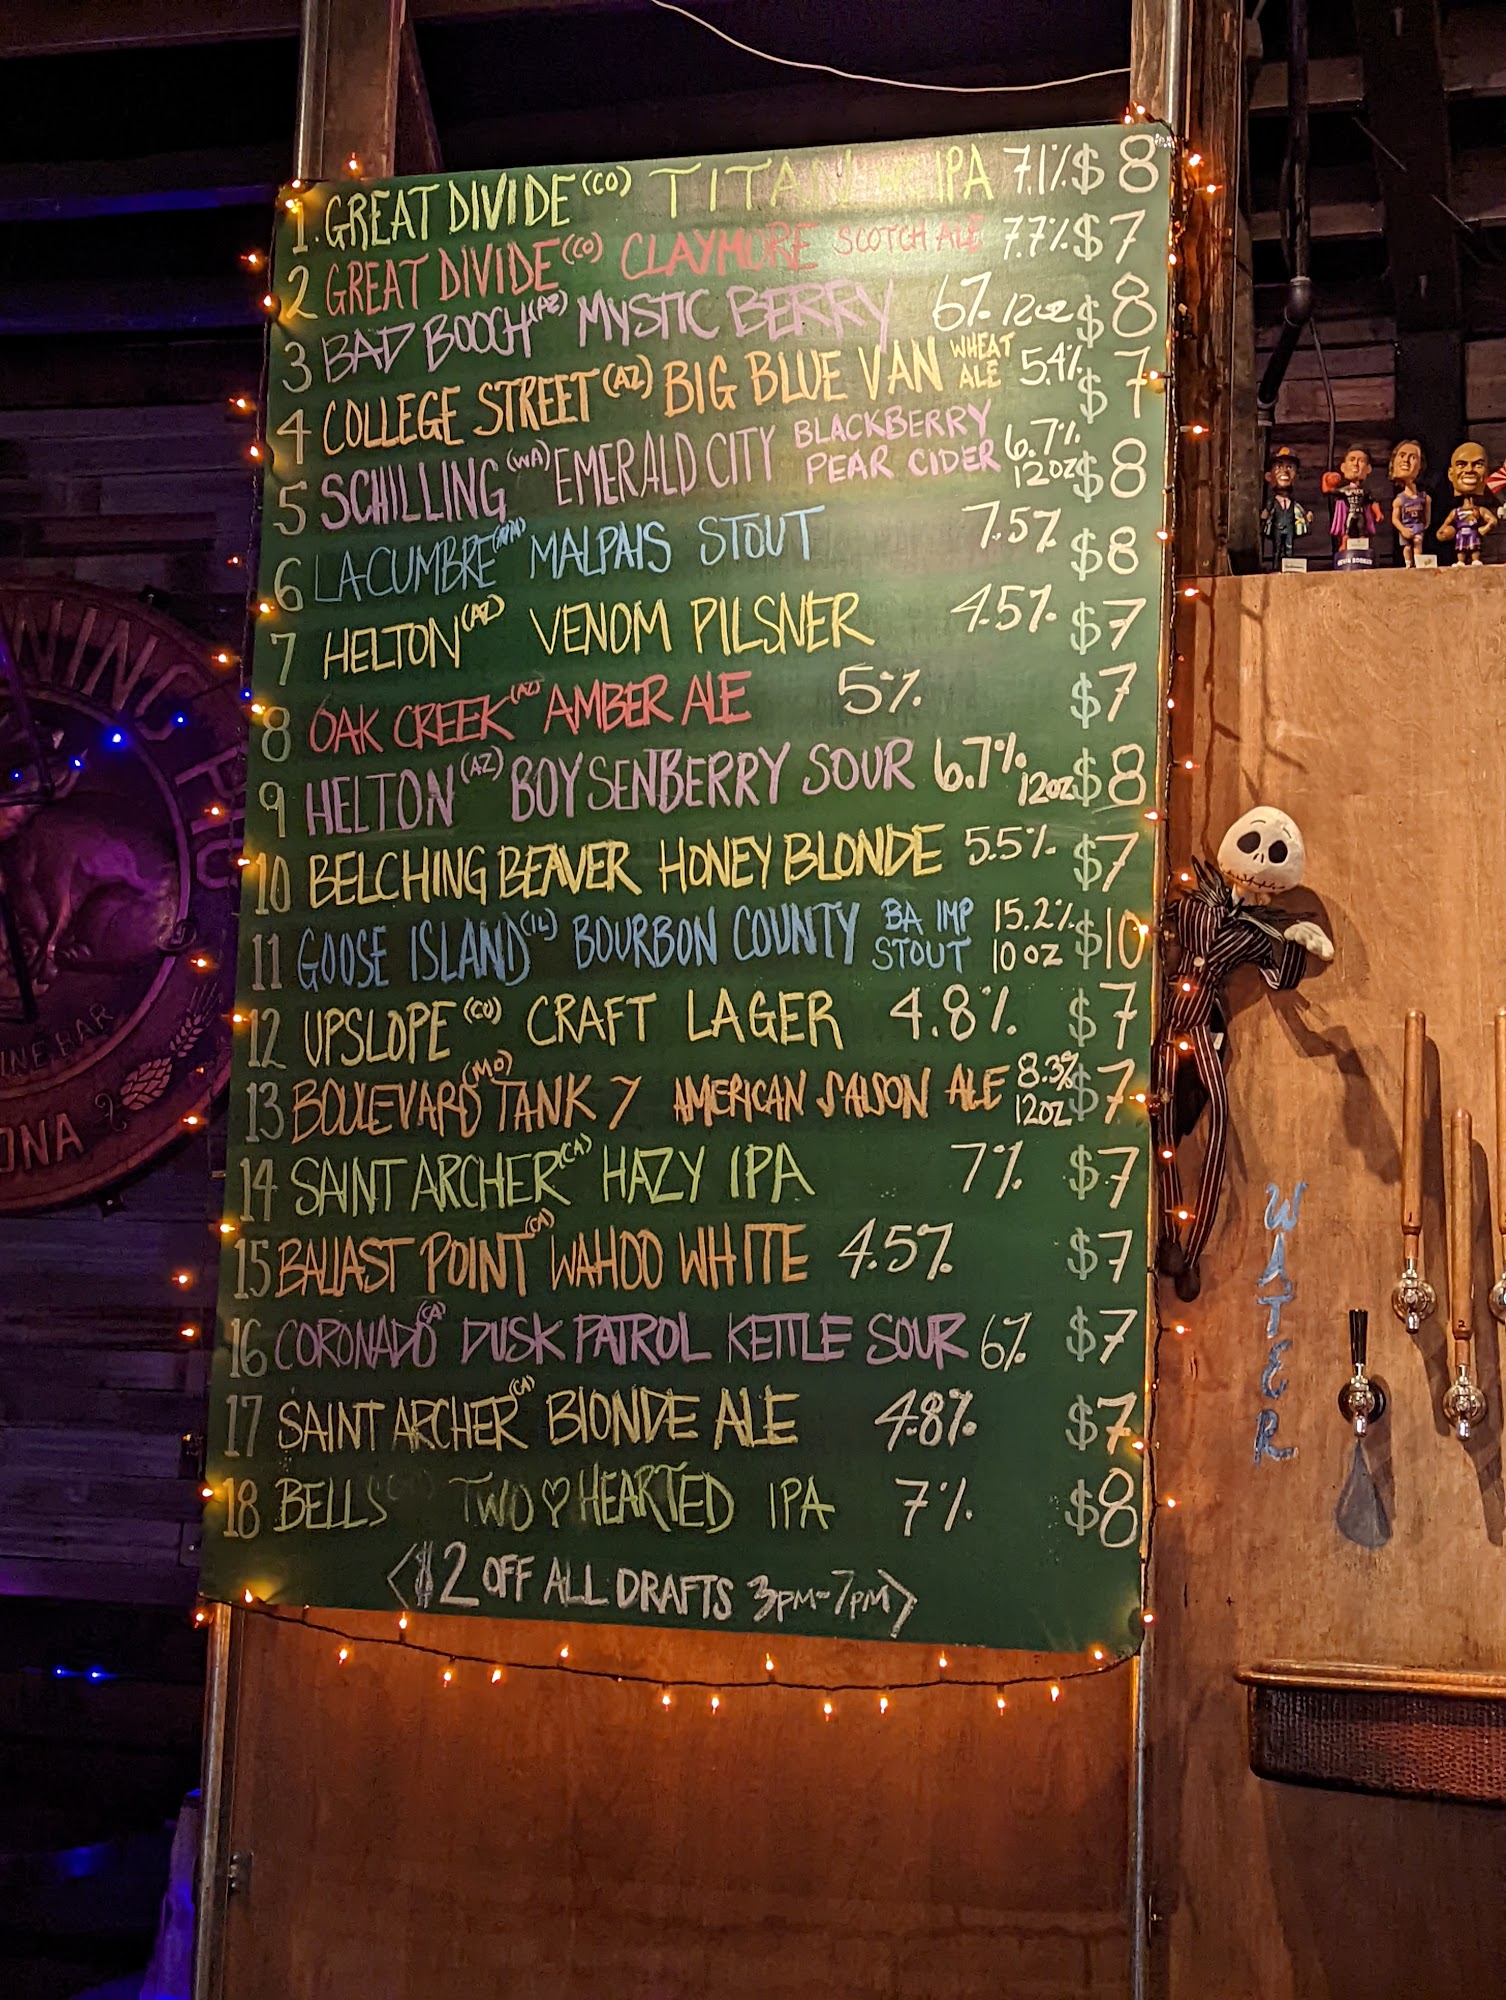 1. GREAT DIVIDE (CO) TITAN IPA 7.1% $8
2 GREAT DIVIDE (CO) CLAYMORE SCOTCH ALE 7.7% $7
3 BAD BOOCH (AZ) MYSTIC BERRY 6% 12oz $8
4 COLLEGE STREET (AZ) BIG BLUE VAN WHEAT ALE 5.4% $7
5 SCHILLING (WA) EMERALD CITY BLACKBERRY PEAR CIDER 6.7% 12OZ $8
6 LA CUMBRE (NM) MALPAIS STOUT 7.5% $8
7 HELTON (AZ) VENOM PILSNER 4.5% $7
8 OAK CREEK (AZ) AMBER ALE 5% $7
9 HELTON (AZ) BOYSENBERRY SOUR 6.7% 12OZ $8
10 BELCHING BEAVER HONEY BLONDE 5.5% $7
11 GOOSE ISLAND (IL) BOURBON COUNTY BA IMP STOUT 15.2% 10 OZ $10
12 UPSLOPE (CO) CRAFT LAGER 4.8% $7
13 BOULEVARD (MO) TANK 7 AMERICAN SAISON ALE 8.3% 12OZ $7
14 SAINT ARCHER (CA) HAZY IPA 7% $7
15 BALLAST POINT (CA) WAHOO WHITE 4.5% $7
16 CORONADO (CA) DUSK PATROL KETTLE SOUR 6% $7
17 SAINT ARCHER (CA) BLONDE ALE 4.8% $7
18 BELLS TWO ♡ HEARTED IPA 7% $8
<$2 OFF ALL DRAFTS 3PM-7PM>
WATER